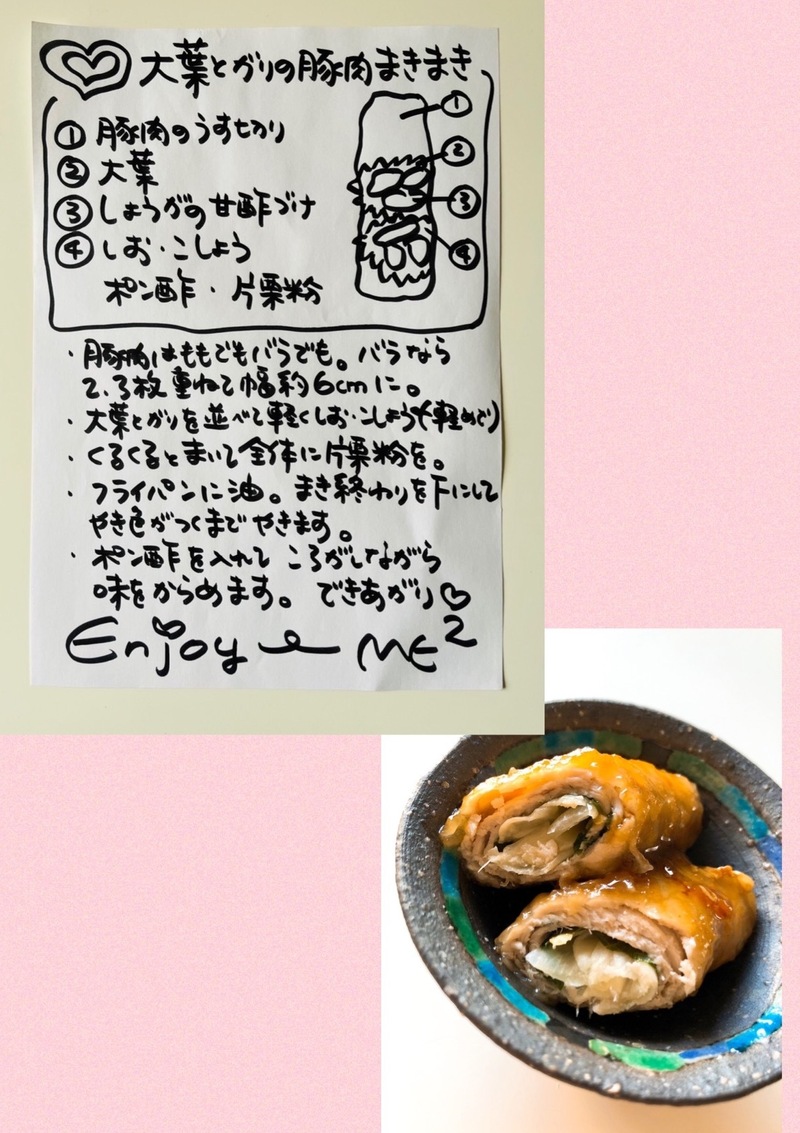 大葉とがりの豚肉まきまき
① 豚肉のうす切り
② 大葉
③ しょうがの甘酢づけ
④ しお・こしょう
ポン酢・片栗粉
①
②
③
④
・豚肉はももでもバラでも。バラなら
2.3枚重ねて幅約6cmに。
・大葉とがりを並べて軽くしお・こしょう(軽めで)
・くるくるとまいて全体に片栗粉を。
・フライパンに油。まき終わりを下にして
やき色がつくまでやきます。
・ポン酢を入れて ころがしながら
味をからめます。できあがり♡
Enjoy ME²